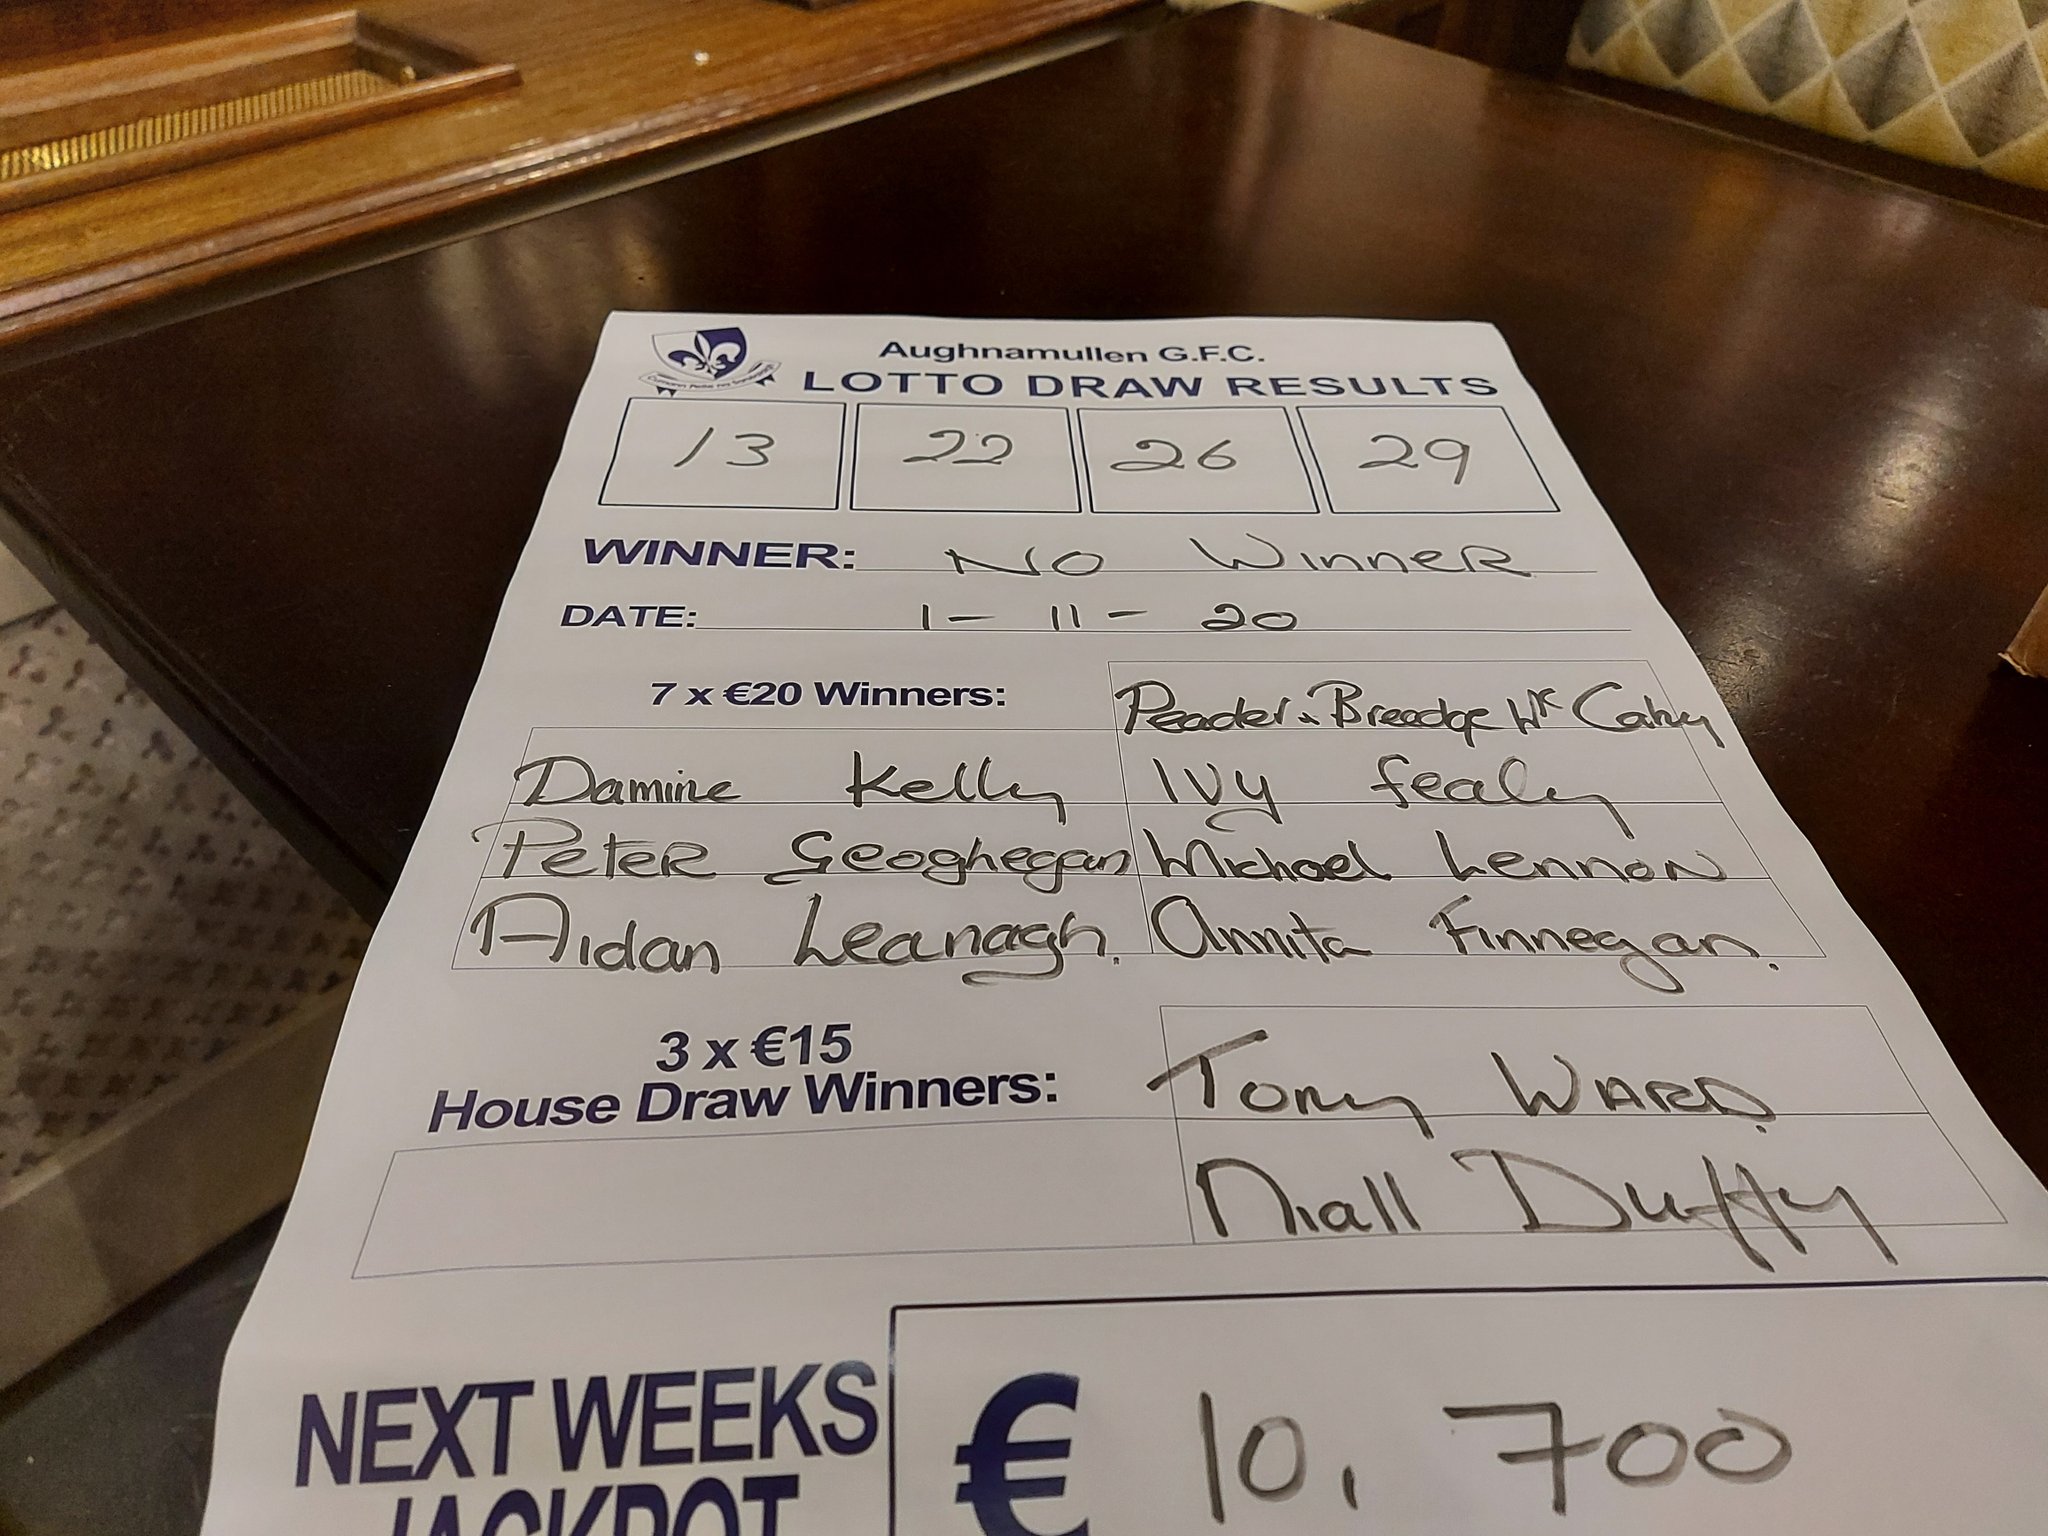 Aughnamullen G.F.C.
LOTTO DRAW RESULTS
13 22 26 29
WINNER: No Winner
DATE: 1 - 11 - 20
7 x €20 Winners: Peader & Breedge Mc Cahey
Damine Kelly Ivy Fealy
Peter Geoghegan Michael Lennon
Aidan Leanagh. Annita Finnegan.
3 x €15
House Draw Winners:
Tony Ward.
Niall Duffy
NEXT WEEKS
JACKPOT
€ 10,700